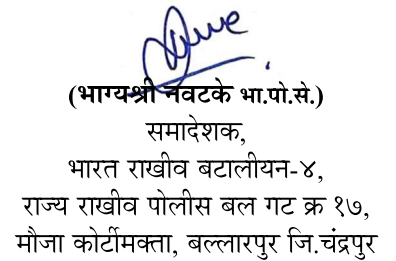 (भाग्यश्री नवटके भा.पो.से.)
समादेशक,
भारत राखीव बटालीयन-४,
राज्य राखीव पोलीस बल गट क्र १७,
मौजा कोर्टीमक्ता, बल्लारपुर जि.चंद्रपुर